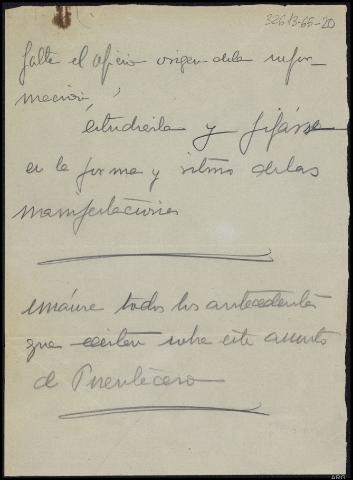 32613-65-20
falta el oficio origen de la infor-
mación,
estudiarla y fijarse
en la forma y ritmo de las
manifestaciones
únanse todos los antecedentes
que existan sobre este asunto
de Puentecesо
ARG